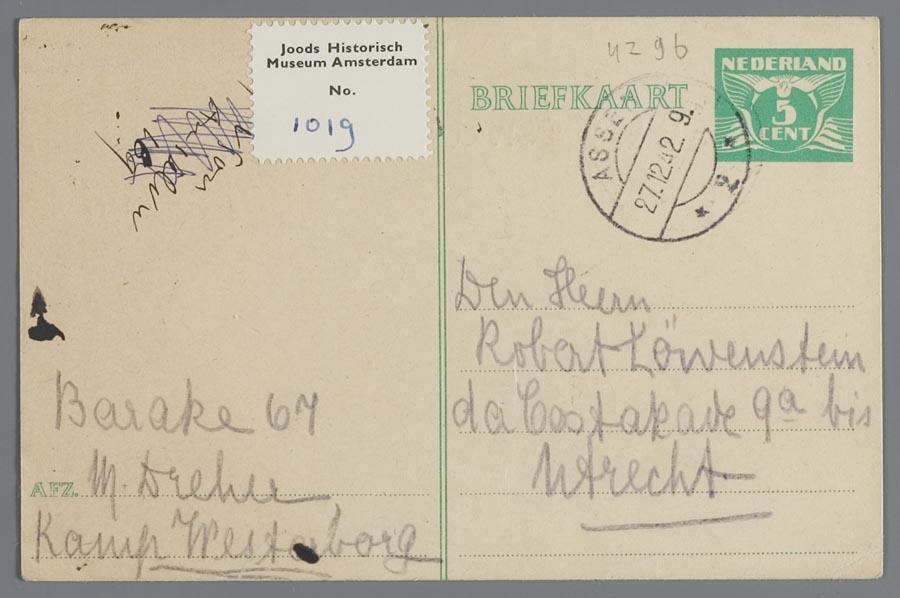 Joods Historisch
Museum Amsterdam
No.
1019
Barake 67
AFZ. M. Dreher
Kamp Westerborg
4296
BRIEFKAART
NEDERLAND
5
CENT
ASSEN
27.12.42.9.
* 2 *
Den Heern
Robert Löwenstein
da Costakade 9a bis
Utrecht